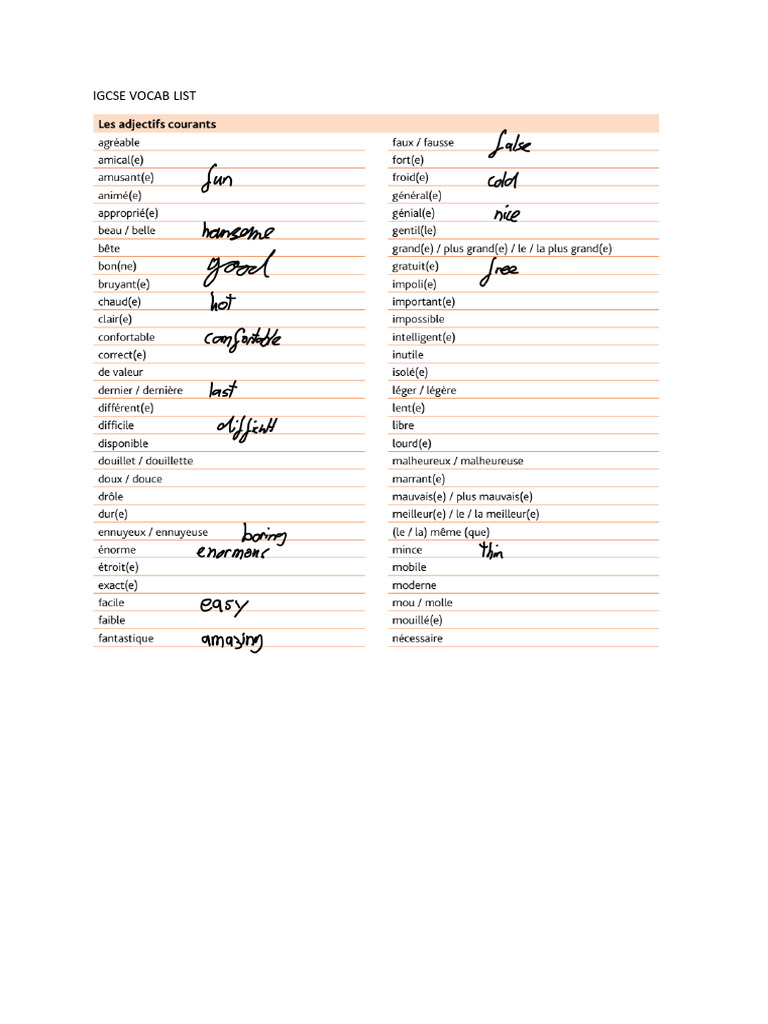 IGCSE VOCAB LIST
Les adjectifs courants
agréable
amical(e)
amusant(e) fun
animé(e)
approprié(e)
beau / belle hansome
bête
bon(ne) good
bruyant(e)
chaud(e) hot
clair(e)
confortable comfortable
correct(e)
de valeur
dernier / dernière last
différent(e)
difficile
disponible
douillet / douillette
doux / douce
drôle
dur(e)
ennuyeux / ennuyeuse boring
énorme
étroit(e)
exact(e)
facile easy
faible
fantastique amazing
faux / fausse false
fort(e)
froid(e) cold
général(e)
génial(e) nice
gentil(le)
grand(e) / plus grand(e) / le / la plus grand(e)
gratuit(e) free
impoli(e)
important(e)
impossible
intelligent(e)
inutile
isolé(e)
léger / légère
lent(e)
libre
lourd(e)
malheureux / malheureuse
marrant(e)
mauvais(e) / plus mauvais(e)
meilleur(e) / le / la meilleur(e)
(le / la) même (que)
mince thin
mobile
moderne
mou / molle
mouillé(e)
nécessaire